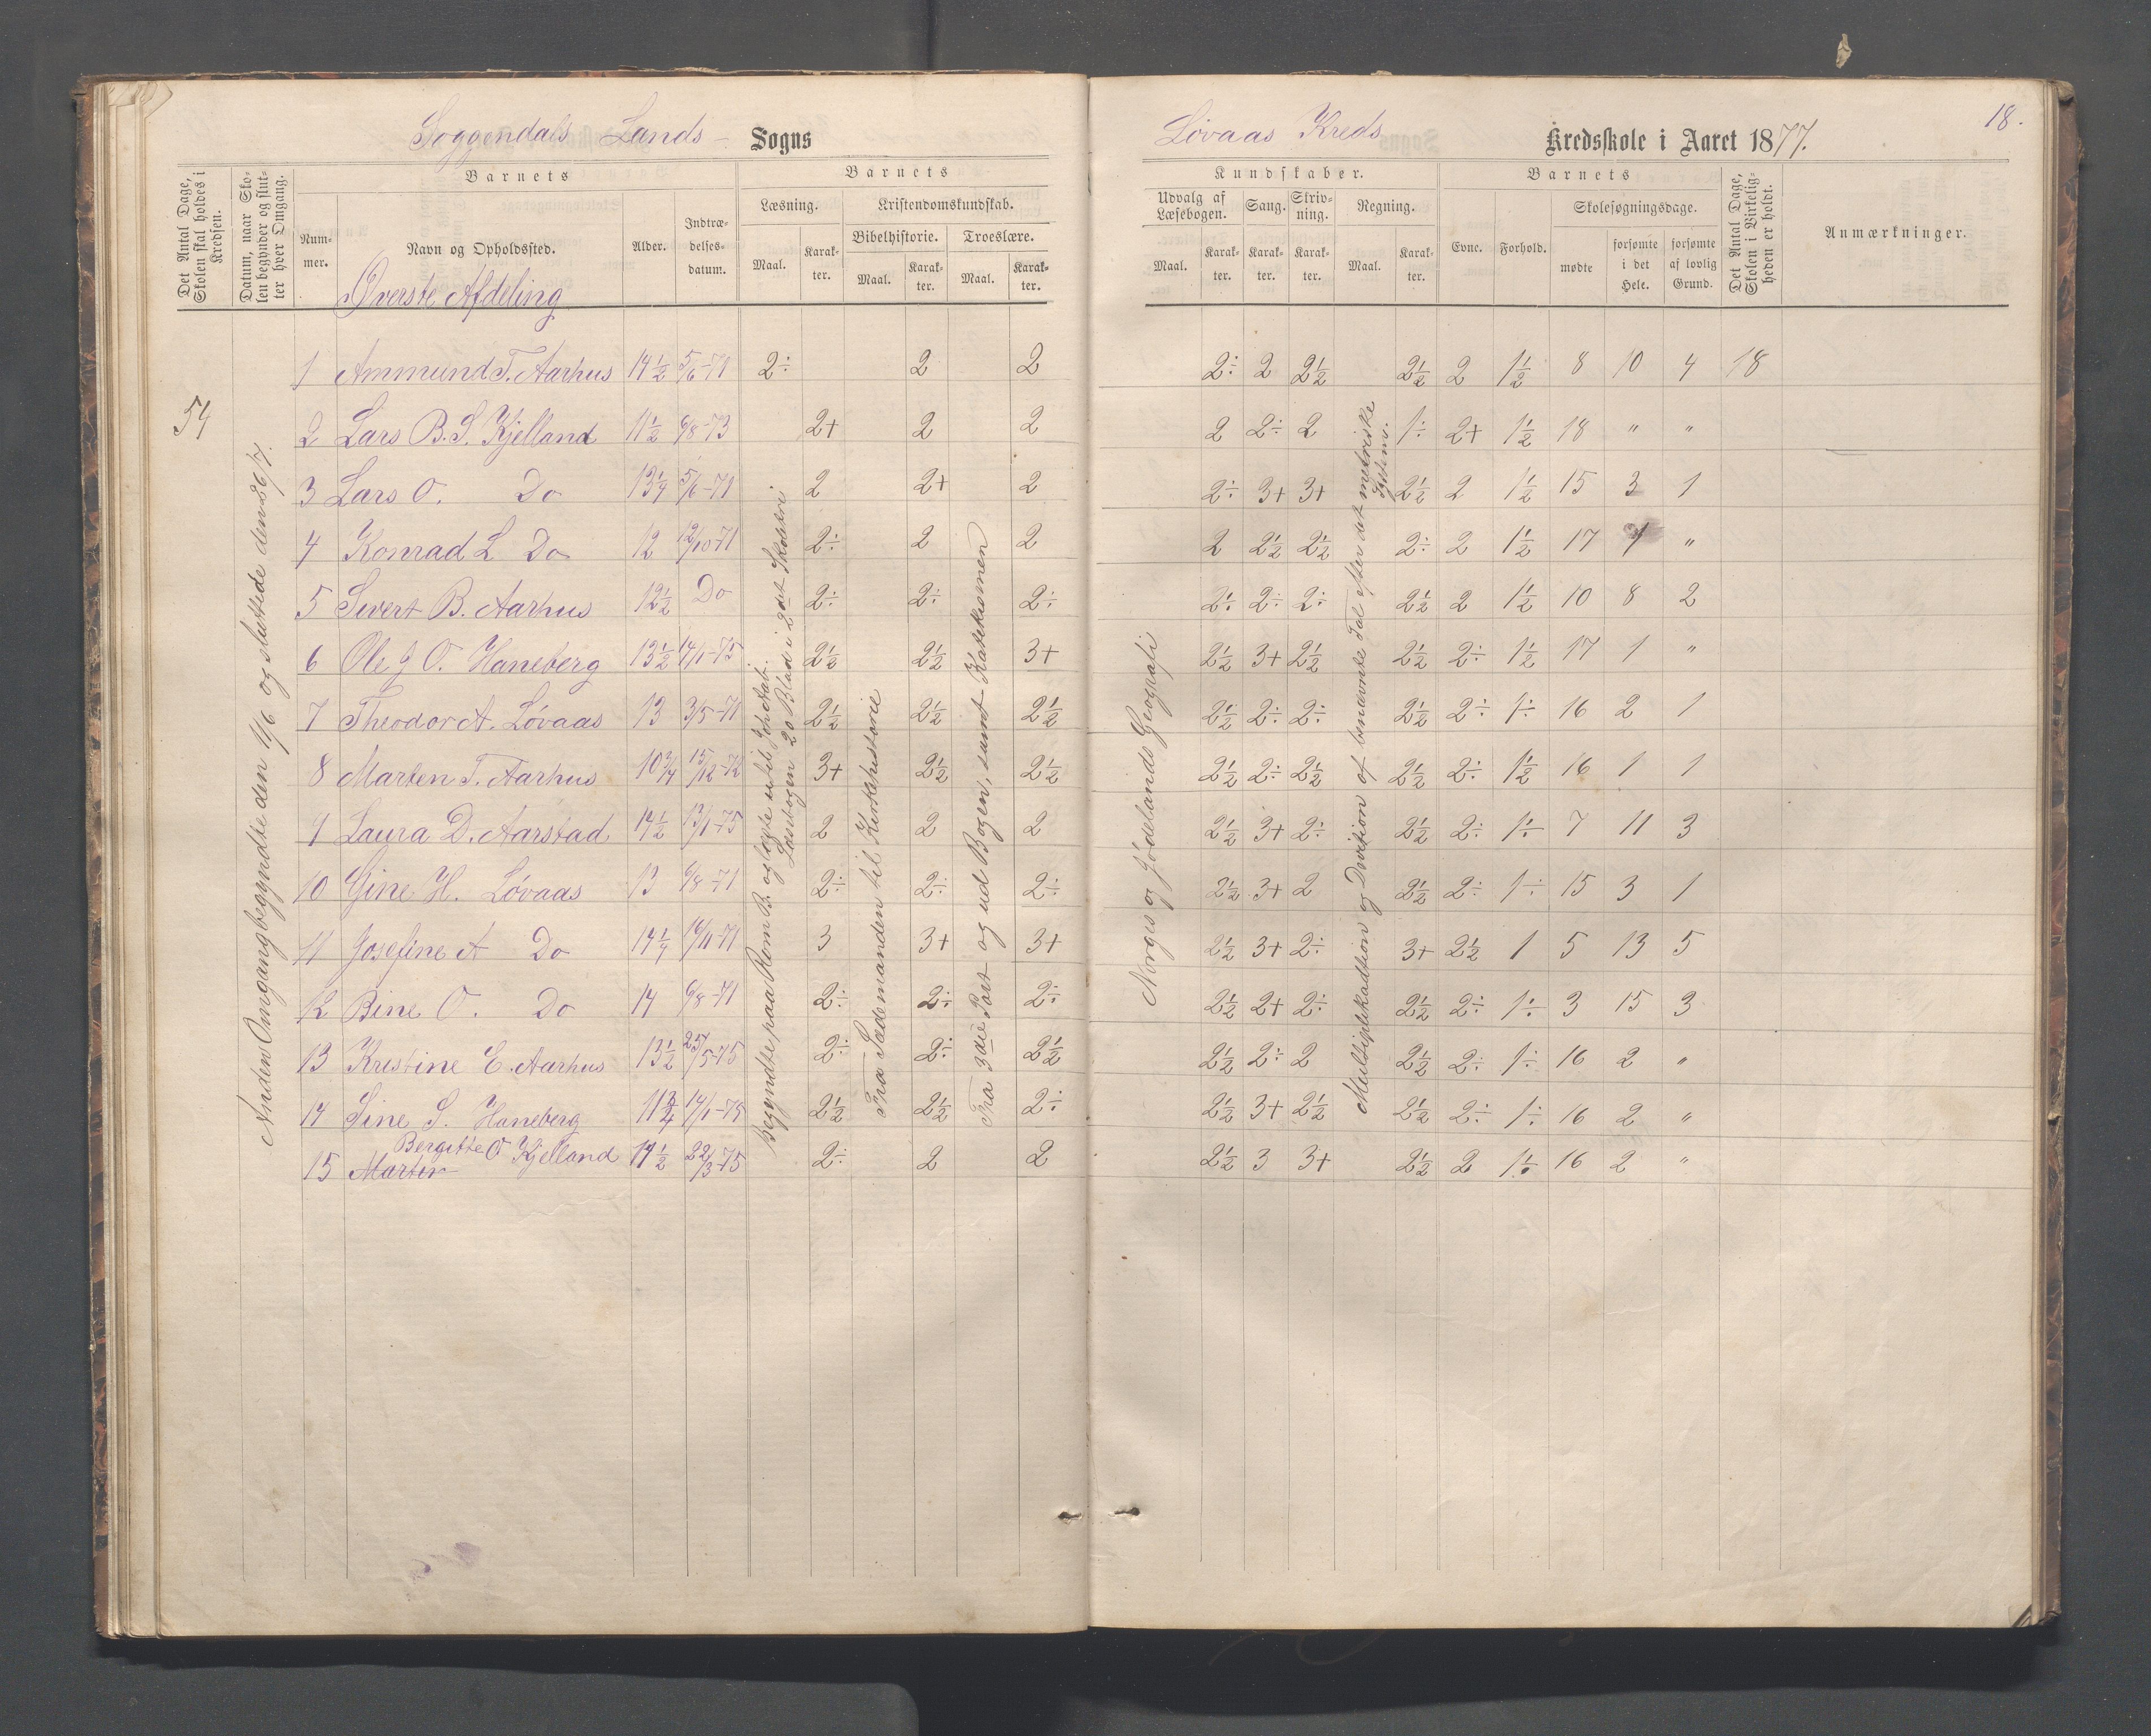 18.
Soggendals Lands- Sogns
Løvaas Kreds Kredsskole i Aaret 1877.
Det Antal Dage, Skolen skal holdes i Kredsen.
Datum, naar Skolen begynder og slutter hver Omgang.
Barnets
Nummer.
Navn og Opholdssted.
Alder.
Indtrædelsesdatum.
Barnets
Læsning.
Maal.
Karakter.
Kristendomskundskab.
Bibelhistorie.
Maal.
Karakter.
Troeslære.
Maal.
Karakter.
Kundskaber.
Udvalg af Læsebogen.
Maal.
Karakter.
Sang.
Karakter.
Skrivning.
Karakter.
Regning.
Maal.
Karakter.
Barnets
Evne.
Forhold.
Skolesøgningsdage.
mødte
forsømte i det Hele.
forsømte af lovlig Grund.
Det Antal Dage, Skolen i Virkeligheden er holdt.
Anmærkninger.
Øverste Afdeling
54
Anden Omgang begyndte den 1/6 og sluttede den 26/7.
Fra Sademanden til Kirkehistorie
Fra 3die Part og ud Bogen, samt Katekismen
Norges og Jødelands Geografi
Multiplikadtion og Divition af benævnte Tal efter det metriske System.
1 Ammund T. Aarhus 14½ 5/6-71 2÷ 2 2 2÷ 2 2½ 2½ 2 1½ 8 10 4 18
2 Lars B. S. Kjelland 11½ 6/8-73 2+ 2 2 2 2÷ 2 1÷ 2+ 1½ 18 " "
3 Lars O. Do 13¼ 5/6-71 2 2+ 2 2÷ 3+ 3+ 2½ 2 1½ 15 3 1
4 Konrad L Do 12 12/10-71 2÷ 2 2 2 2½ 2½ 2÷ 2 1½ 17 1 "
5 Sivert B. Aarhus 12½ Do 2÷ 2÷ 2÷ 2÷ 2÷ 2÷ 2½ 2 1½ 10 8 2
6 Ole J O. Haneberg 13½ 14/1-75 2½ 2½ 3+ 2½ 3+ 2½ 2½ 2÷ 1½ 17 1 "
7 Theodor A. Løvaas 13 3/5-71 2½ 2½ 2½ 2½ 2÷ 2÷ 2½ 2÷ 1÷ 16 2 1
8 Marten T. Aarhus 10¾ 15/12-72 3+ 2½ 2½ 2½ 2÷ 2½ 2½ 2÷ 1½ 16 1 1
9 Laura D. Aarstad 14½ 13/1-75 2 2 2 2½ 3+ 2÷ 2½ 2÷ 1÷ 7 11 3
10 Gine H. Løvaas 13 6/8-71 2÷ 2÷ 2÷ 2½ 3+ 2 2½ 2÷ 1÷ 15 3 1
11 Josefine A Do 14¼ 16/11-71 3 3+ 3+ 2½ 3+ 2÷ 3+ 2½ 1 5 13 5
12 Bine O. Do 14 6/8-71 2÷ 2÷ 2÷ 2½ 2+ 2÷ 2½ 2÷ 1÷ 3 15 3
13 Kristine E. Aarhus 13½ 25/5-75 2÷ 2÷ 2½ 2½ 2÷ 2 2½ 2÷ 1÷ 16 2 "
14 Sine S. Haneberg 11¾ 14/1-75 2½ 2½ 2÷ 2½ 3+ 2½ 2½ 2÷ 1÷ 16 2 "
15 Bergitte O Kjelland 14½ 22/3-75 2÷ 2 2 2½ 3 3+ 2½ 2 1÷ 16 2 "